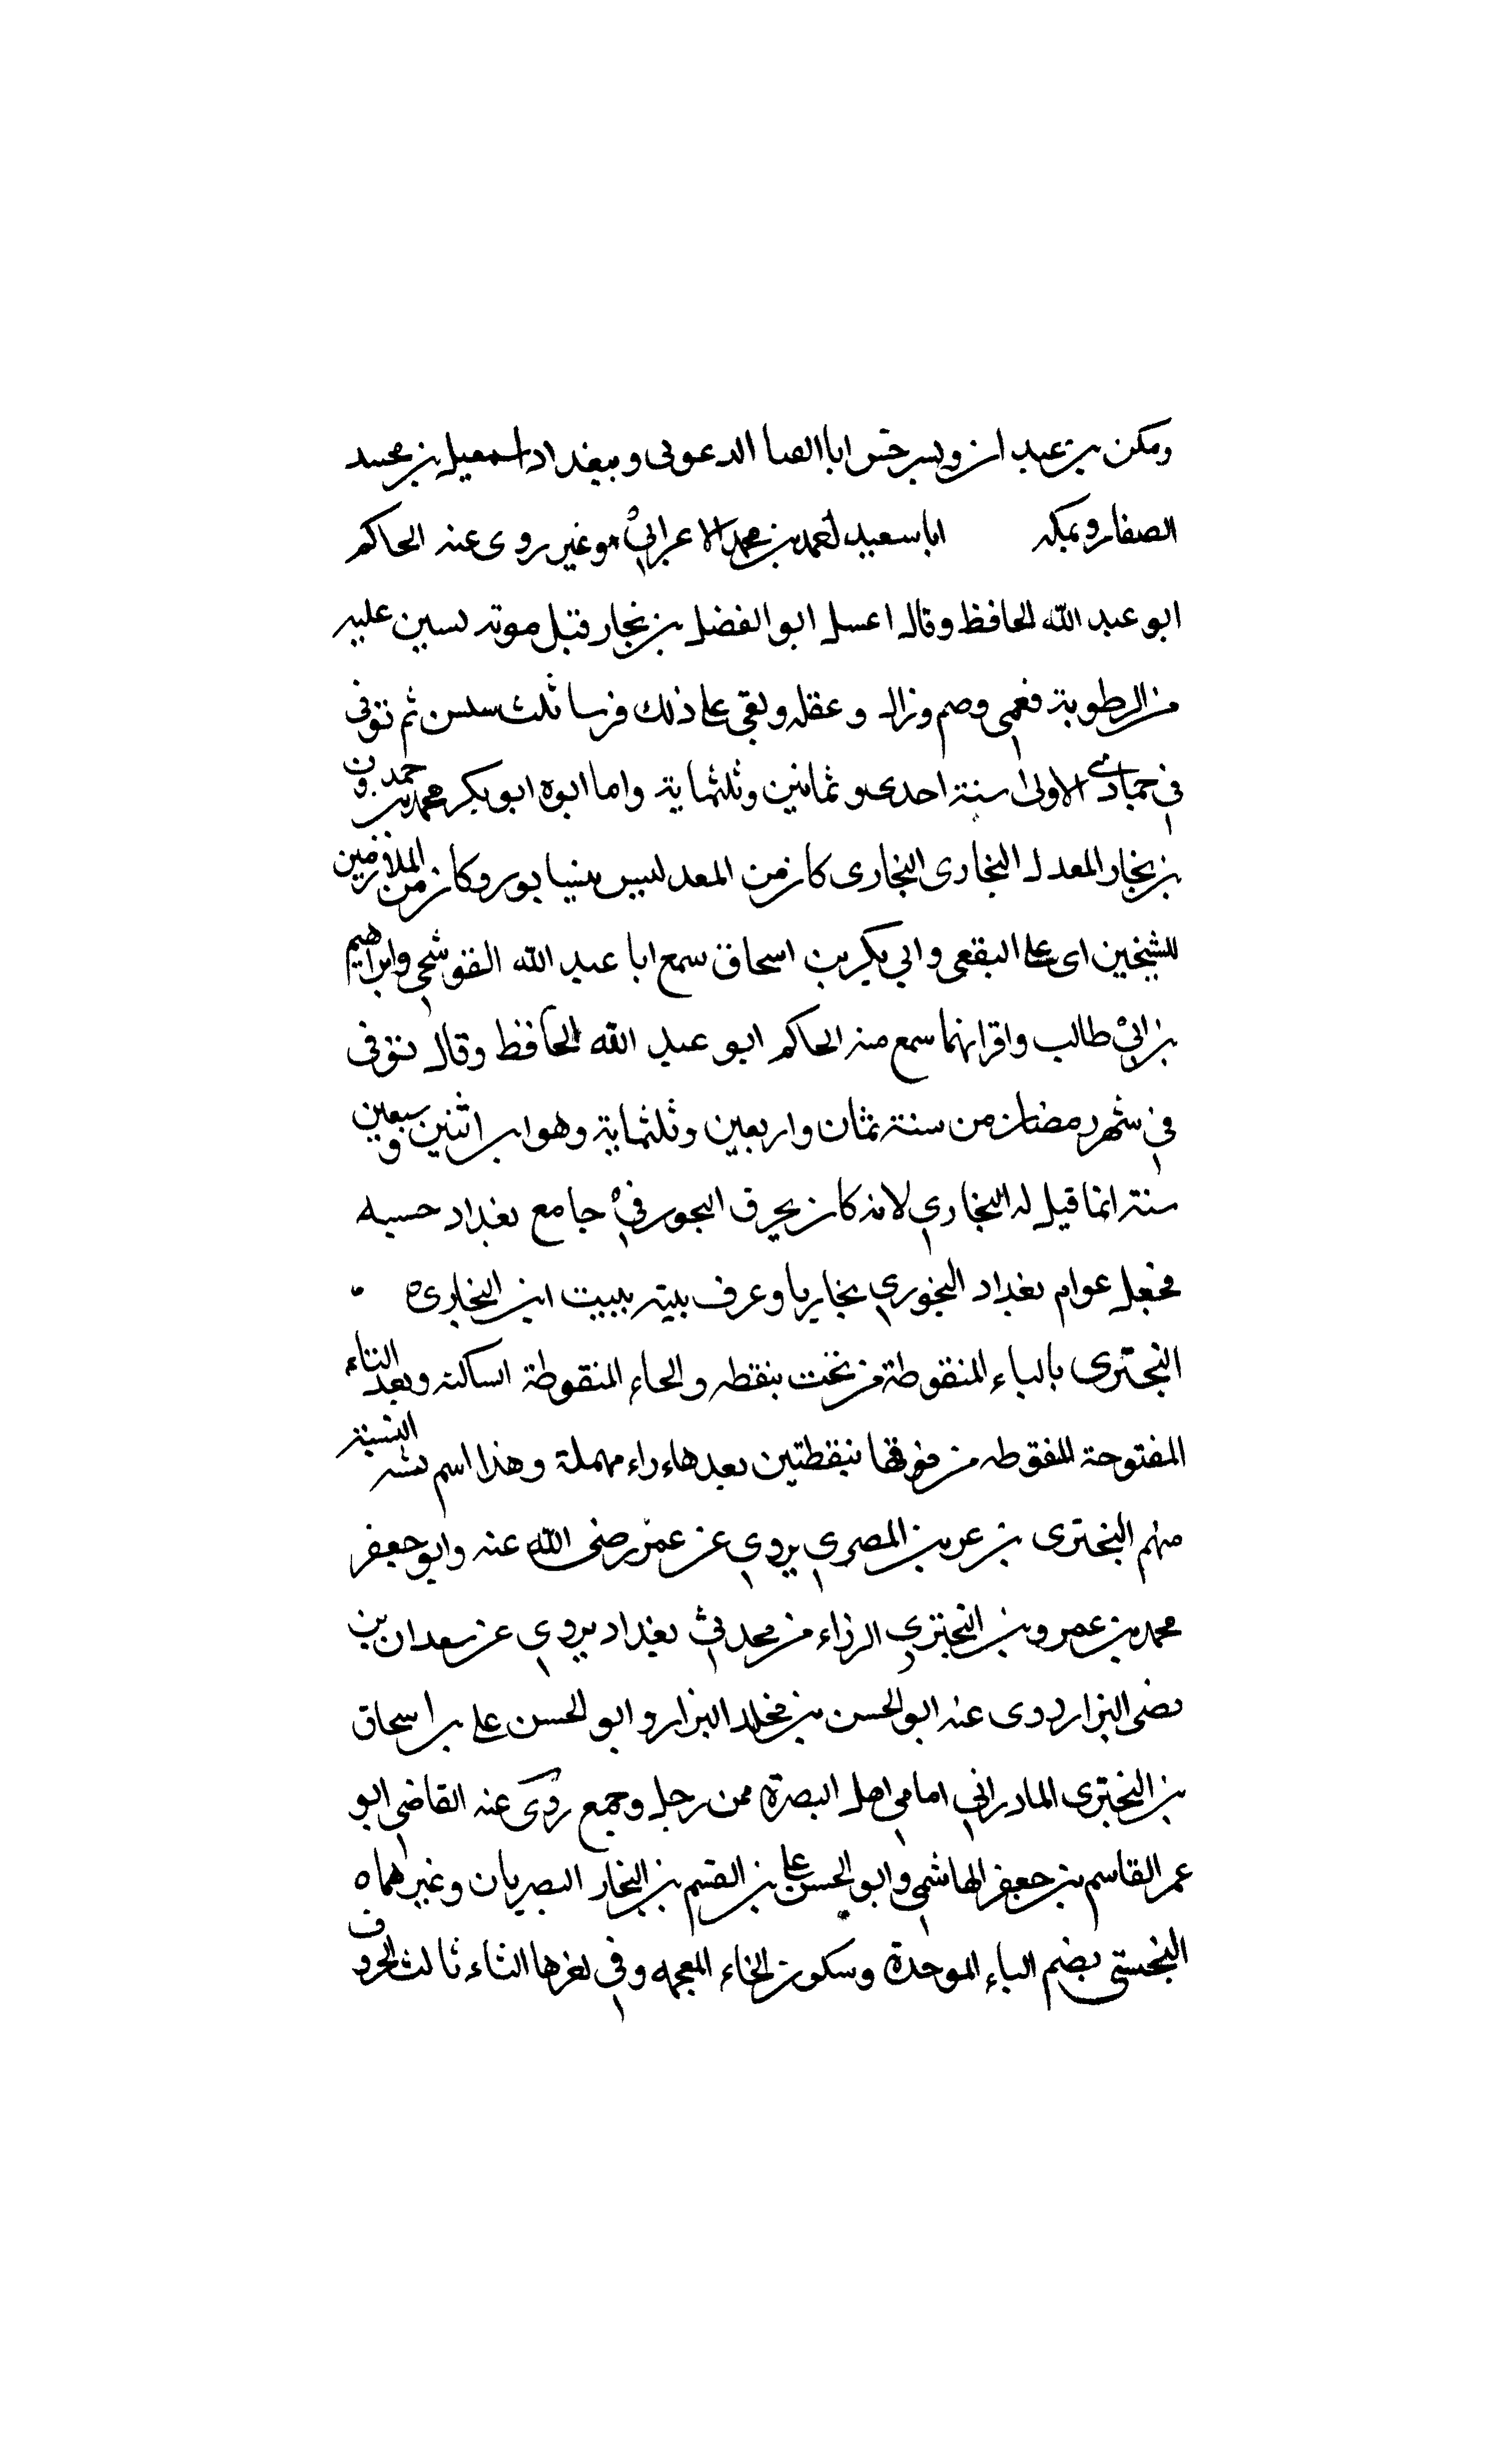 ومكن بن عبدان وبسرخس ابا العبا الدعولى وببغداد اسمعيل بن محمد
الصفار وبمكه ابا سعيد احمد بن محمد الاعرابي وغير روى عنه الحاكم
ابو عبد الله الحافظ وقال اعسل ابو الفضل بن بخار قبل موته بسنين عليه
من الرطوبة فعمى وصم وزال وعقله وبقى على ذلك قرىبا ثلث سنين ثم توفى
في جمادى الاولى سنة احدى وثمانين وثلثماية واما ابوه ابو بكر محمد بن حمدون
بن بخار المعدل البخارى البخارى كان من المعدلين بنيسابور وكان من الملازمين
للشيخين ابى على الثقفى وابي بكر بن اسحاق سمع ابا عبد الله البوشنجي وابراهيم
بن ابي طالب واقرانهما سمع منه الحاكم ابو عبد الله الحافظ وقال توفى
في شهر رمضان من سنة ثمان واربعين وثلثماية وهو ابن اثنين وسبعين
سنة انما قيل له البخاري لانه كان يحرق البخور في جامع بغداد حسبه
فجعل عوام بغداد البخوري بخاريا وعرف بيته ببيت ابن البخارى ه
البحترى بالباء المنقوطة من تحت بنقطه والحاء المنقوطة الساكنة وبعد التاء
المفتوحة المنقوطه من فوقها بنقطتين بعدها راء مهملة وهذا اسم يشبه النسبة
منهم البخترى بن عرين المصري يروي عن عمر رضى الله عنه وابو جعفر
محمد بن عمرو بن البختري الرزاء من محدثي بغداد يروي عن سعدان بن
نصر البزار روى عنه ابو الحسن بن مخلد البزار وابو الحسن على بن اسحاق
بن البخترى المادراني امامي اهل البصرة ممن رحل وجمع روى عنه القاضي ابو
عمر القاسم بن جعفر الهاشمي وابو الحسن على بن القسم بن البخار البصريان وغيرهما ه
البخستى بضم الباء الموحدة وسكون الخاء المعجمه وفي اخرها التاء ثالث الحروف